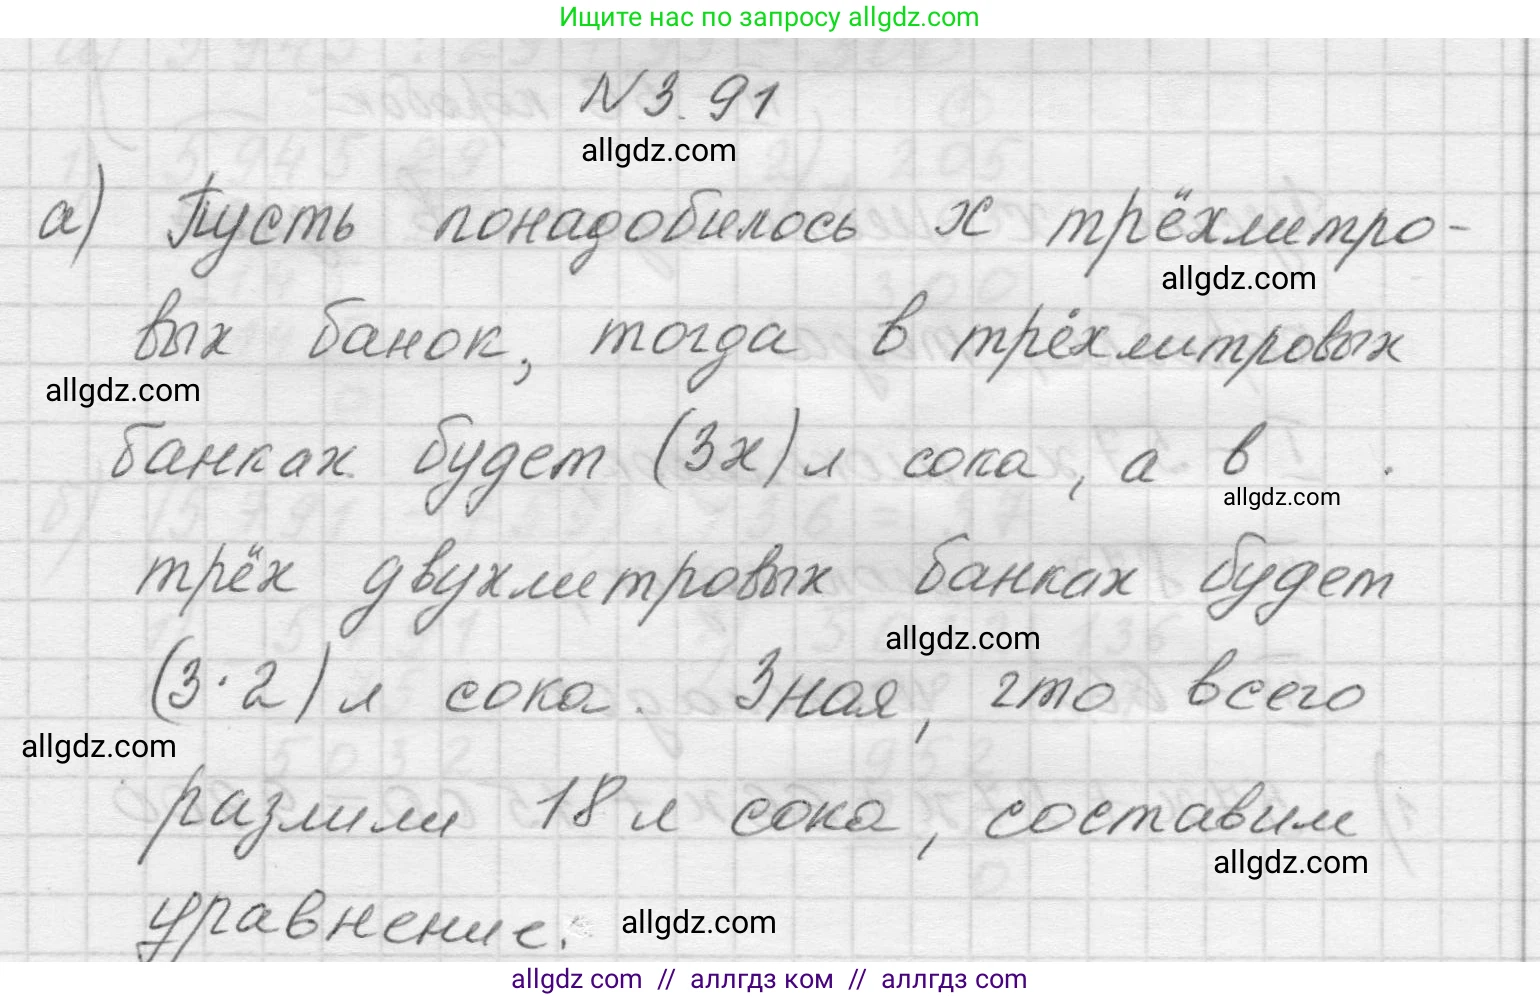 Ищите нас по запросу allgdz.com
N 3.91
allgdz.com
а) Пусть понадобилось x трёхлитро-
allgdz.com
вых банок, тогда в трёхлитровых
allgdz.com
банках будет (3x) л сока, а в
allgdz.com
трёх двухлитровых банках будет
allgdz.com
(3·2) л сока. Зная, что всего
allgdz.com
разлили 18 л сока, составим
allgdz.com
уравнение.
allgdz.com
allgdz com // аллгдз ком // аллгдз com